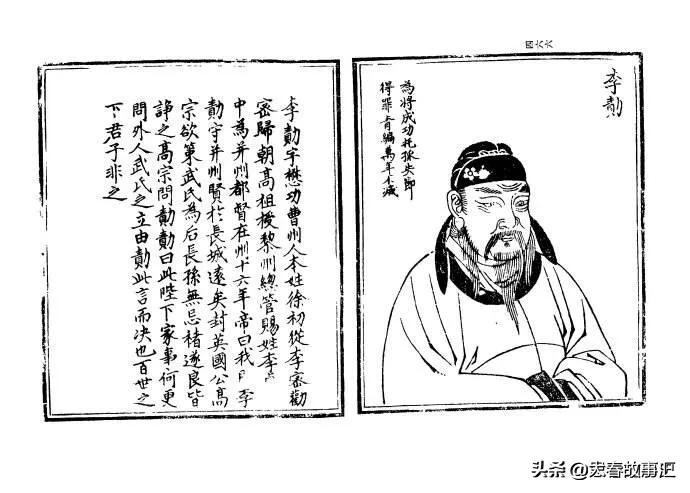 四六六
李勣
為將成功托孤失節
得罪青編萬年不滅
李勣字懋功曹州人本姓徐初從李密勸
密歸朝高祖授黎州總管賜姓李
中為并州都督在州十六年帝曰我用李
勣守并州賢於長城遠矣封英國公高
宗欲策武氏為后長孫無忌褚遂良皆
諍之高宗問勣勣曰此陛下家事何更
問外人武氏之立由勣此言而决也百世之
下君子非之
头条 @春故事汇